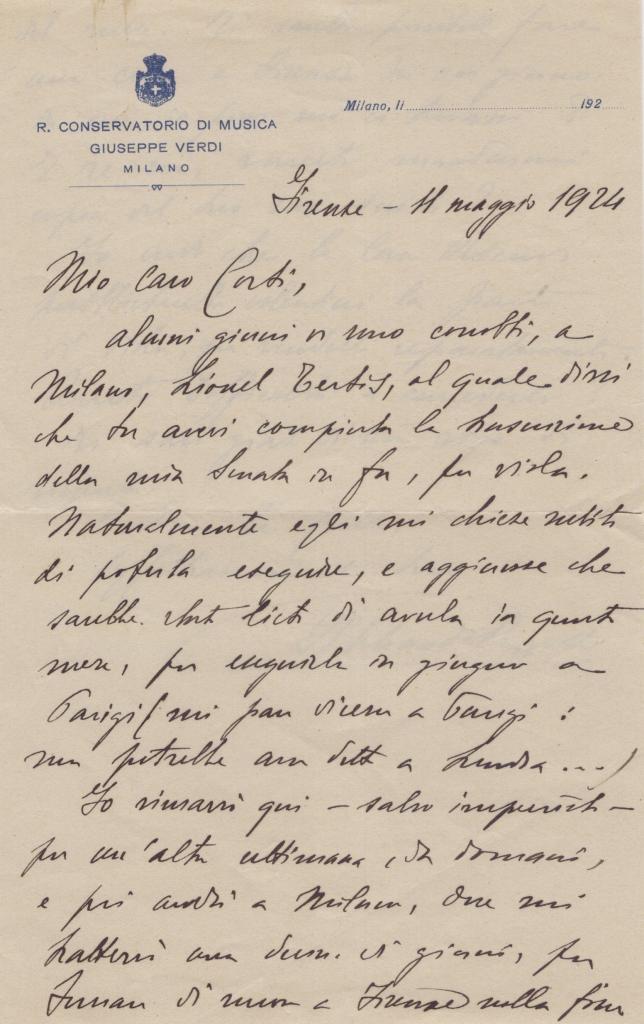 R. CONSERVATORIO DI MUSICA
GIUSEPPE VERDI
MILANO
Milano, li 192
Firenze - 11 maggio 1924
Mio caro Corti,
alcuni giorni or sono conobbi, a
Milano, Lionel Tertis, al quale dissi
che tu avevi compiuta la trascrizione
della mia Sonata in fa, per viola.
Naturalmente egli mi chiese subito
di poterla eseguire, e aggiunse che
sarebbe stato lieto di averla in questo
mese, per eseguirla in giugno a
Parigi (mi pare dicesse a Parigi:
ma potrebbe aver detto a Londra...)
Io rimarrò qui - salvo imprevisti -
per un'altra settimana, da domani,
e poi andrò a Milano, dove mi
tratterrò una decina di giorni, per
tornare di nuovo a Firenze nella fine